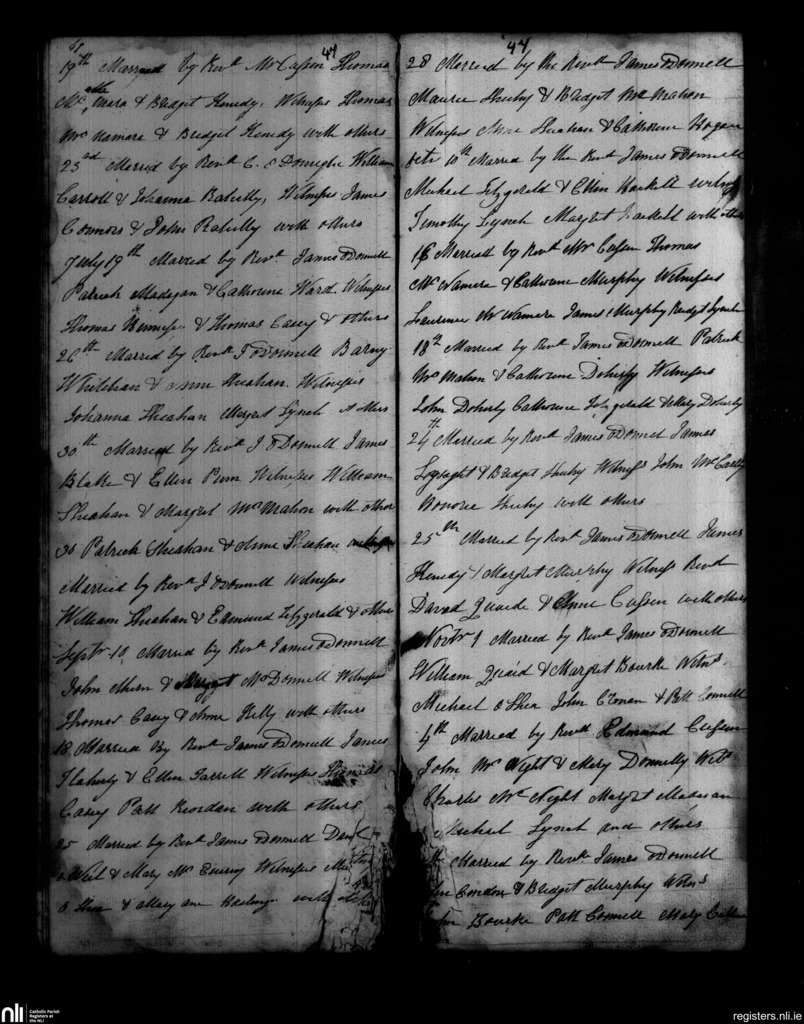 61
47
19th Married by Revd Mr Cussen Thomas
Mc Mara & Bridget Kenedy. Witness Thomas
Mc Namara & Bridget Kenedy with others
23rd Married by Revd C. William
Carroll & Johanna Witness James
Connors & John with others
July 19th Married by Revd James ODonnell
Patrick Madigan & Catherine Ward. Witnesses
Thomas & Thomas Casey & others
26th Married by Revd J ODonnell Barny
& Anne Sheahan. Witnesses
Johanna Sheahan Margret Lynch
30th Married by Revd J ODonnell James
Blake & Ellen Witness William
Sheahan & Margret McMahon with other
30 Patrick Sheahan & Anne Sheahan
Married by Revd J ODonnell Witness
William Sheahan & Edmund Fitzgerald & others
Septr 10 Married by Revd James ODonnell
John & Margret McDonnell Witness
Thomas Casey & Anne Kelly with others
18 Married By Revd James ODonnell James
Flaherty & Ellen Farrell Witness Thomas
Casey Patt Riordan with others
25 Married by Revd James ODonnell Danl
& Mary Mc Witness
O Shea & Mary ann with others
47
28 Married by the Revd James ODonnell
Maurice & Bridget McMahon
Witness Anne Sheahan & Catherine Hogan
Octr 10th Married by the Revd James ODonnell
Michael Fitzgerald & Ellen Hackett
Timothy Lynch Margret Hackett with others
16 Married by Revd Mr Cussen Thomas
McNamara & Catherine Murphy Witnesses
Laurence McNamara James Murphy Bridget Lynch
18th Married by Revd James ODonnell Patrick
McMahon & Catherine Doherty Witnesses
John Doherty Catherine Fitzgerald & Mary Doherty
24th Married by Revd James ODonnel James
Lysaght & Bridget Witness John McCarthy
Honora with others
25th Married by Revd James ODonnell James
Kenedy & Margret Murphy Witness Revd
David Quaide & Anne Cussen with others
Novbr 1 Married by Revd James ODonnell
William Quaid & Margret Bourke Witns
Michael O Shea John & Patt Connell
4th Married by Revd Edmund Cussen
John McNight & Mary Donnelly Wits
Charles McNight Margret
Michael Lynch and others
Married by Revd James ODonnell
Condon & Bridget Murphy Witns
Bourke Patt Connell Mary
nli
Catholic Parish
Registers at
the NLI
registers.nli.ie